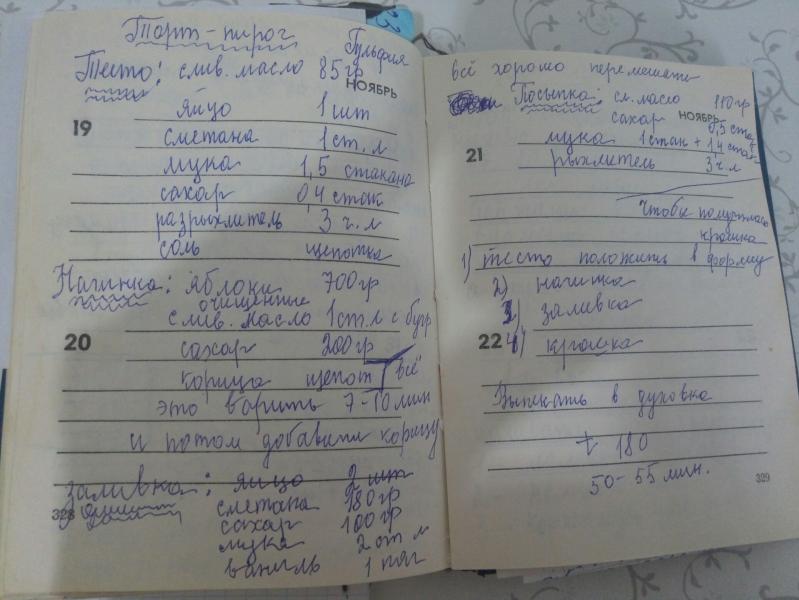 Торт-пирог
Гульфия
Тесто: слив. масло 85гр
НОЯБРЬ
яйцо 1шт
19
сметана 1ст. л
мука 1,5 стакана
сахар 0,4 стак
разрыхлитель 3 ч. л
соль щепотка
Начинка: яблоки 700гр
очищенные
слив. масло 1ст. л с бугр
20
сахар 200гр
корица щепот всё
это варить 7-10 мин
и потом добавить корицу
Заливка: яйцо 2 шт
328
сметана 180гр
сахар 100гр
мука 2 ст л
ваниль 1 пак
всё хорошо перемешать
Посыпка: сл. масло 110гр
НОЯБРЬ
сахар 0,5 стак
21
мука 1стан + 1,4 стак
рыхлитель 3 ч. л
Чтобы получилась
крошка
1) тесто положить в форму
2) начинка
3) заливка
22
4) крошка
Выпекать в духовке
t 180
50-55 мин.
329